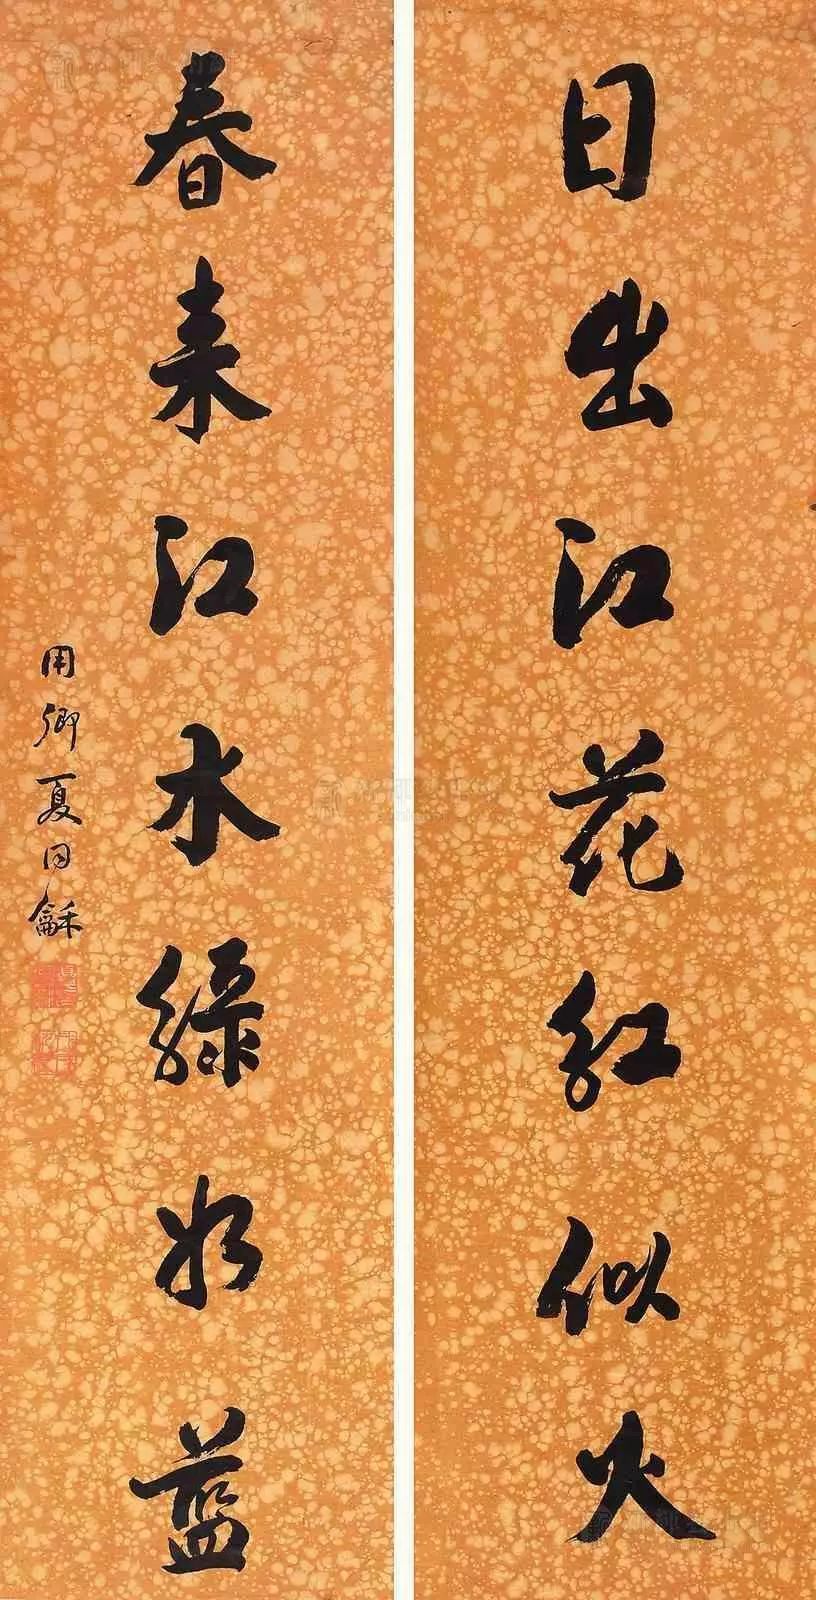 日出江花红似火
春来江水绿如蓝
用卿夏同龢